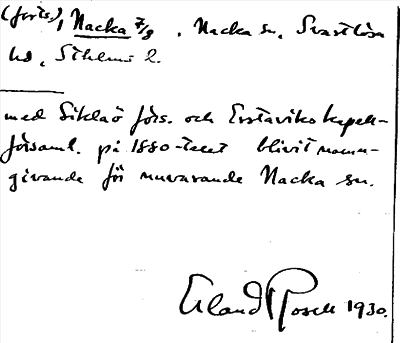 (forts.), Nacka 7/8, Nacka sn, Svartlösa
hd, Sthlms l.
med Sicklaö förs. och Erstaviks kapell-
församl. på 1880-talet blivit namn-
givande för nuvarande Nacka sn.
Erland Rosell 1930.